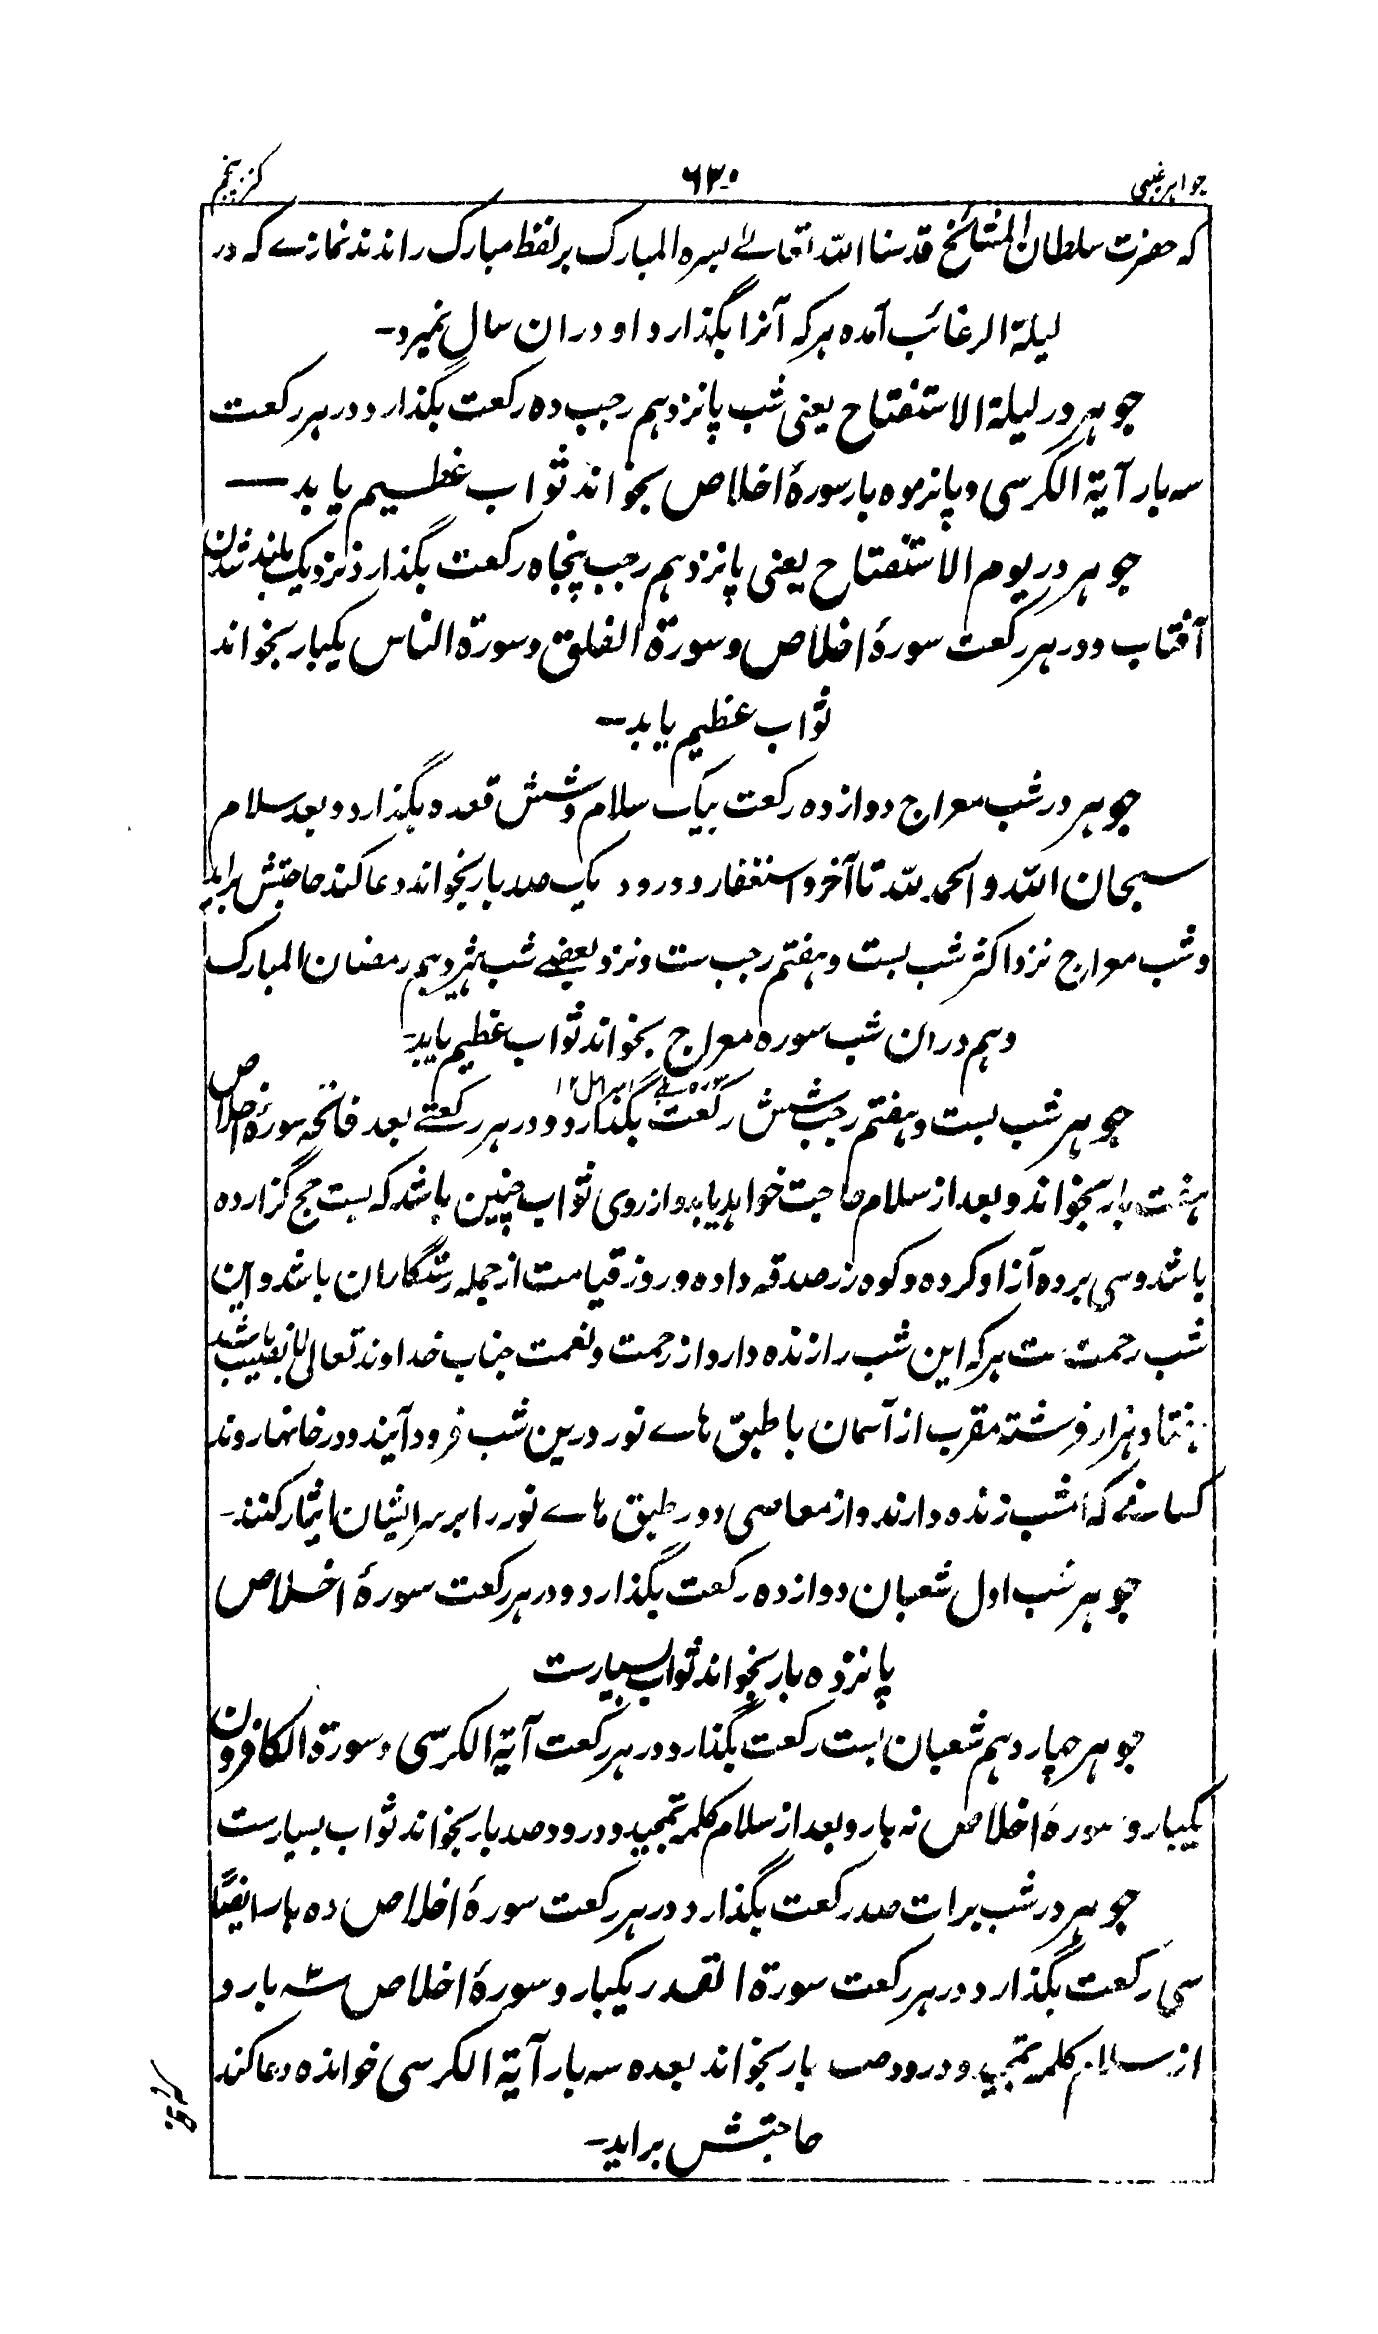 جواہر غیبی
۶۳۰
کنز پنجم
کہ حضرت سلطان المشائخ قدسنا اللہ تعالےٰ بسرہ المبارک بر لفظ مبارک راندند نمازے کہ در
لیلۃ الرغائب آمدہ ہر کہ آنرا بگذارد او دران سال نمیرد۔
جوہر در لیلۃ الاستفتاح یعنی شب پانزدہم رجب دہ رکعت بگذارد و در ہر رکعت
سہ بار آیۃ الکرسی و پانزدہ بار سورۂ اخلاص بخواند ثواب عظیم یابد ــ
جوہر در یوم الاستفتاح یعنی پانزدہم رجب پنجاہ رکعت بگذارد نزدیک بلند شدن
آفتاب و در ہر رکعت سورۂ اخلاص و سورۃ الفلق و سورۃ الناس یکبار بخواند
ثواب عظیم یابد۔
جوہر در شب معراج دوازدہ رکعت بیک سلام و شش قعدہ بگذارد و بعد سلام
سبحان اللہ و الحمد للہ تا آخر و استغفار و درود یک صد بار بخواند دعا کند حاجتش براید
و شب معراج نزد اکثر شب بست و ہفتم رجب ست و نزد بعضے شب ہژدہم رمضان المبارک
دہم دران شب سورہ معراج بخواند ثواب عظیم یابد۔
جوہر شب بست و ہفتم رجب شش رکعت بگذارد و در ہر رکعتے بعد فاتحہ سورۂ اخلاص
ہفت بار بخواند و بعد از سلام حاجت خواہد یابد و از روی ثواب چنین باشد کہ بست حج گزاردہ
باشد و سی بردہ آزاد کردہ و کوہ زر صدقہ دادہ و روز قیامت از جملہ رستگاران باشد و این
شب رحمت ست ہر کہ این شب را زندہ دارد از رحمت و نعمت جناب خداوند تعالیٰ با نصیب باشد
ہفتاد ہزار فرشتہ مقرب از آسمان با طبق ہاے نور درین شب فرود آیند و در خانہا روند
کسانے کہ امشب زندہ دارند و از معاصی دور طبق ہاے نور را بر سر ایشان ایثار کنند۔
جوہر شب اول شعبان دوازدہ رکعت بگذارد و در ہر رکعت سورۂ اخلاص
پانزدہ بار بخواند ثواب بسیارست
جوہر چہاردہم شعبان بست رکعت بگذارد و در ہر رکعت آیۃ الکرسی و سورۃ الکافرون
یکبار و سورہ اخلاص نہ بار و بعد از سلام کلمہ تمجید و درود صد بار بخواند ثواب بسیارست
جوہر در شب برات صد رکعت بگذارد در ہر رکعت سورۂ اخلاص دہ بار ایضاً
سی رکعت بگذارد و در ہر رکعت سورۃ القدر یکبار و سورۂ اخلاص سہ بار و
از سلام کلمہ تمجید و درود صد بار بخواند بعدہ سہ بار آیۃ الکرسی خواندہ دعا کند
حاجتش براید۔